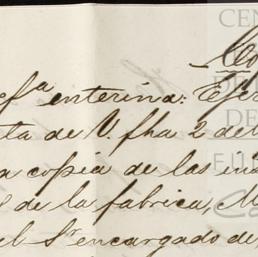 efª enterina: Ejer
ta de V. fha 2 del
a copia de las ins
de la fabrica, M
el Sr encargado de